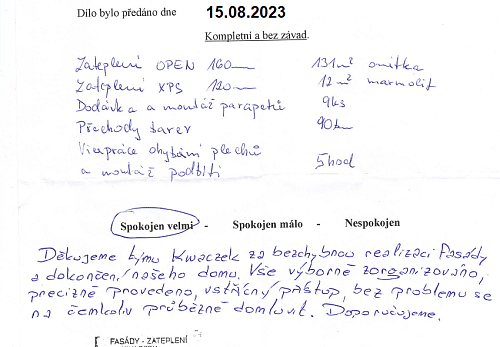 Dílo bylo předáno dne 15.08.2023
Kompletní a bez závad.
Zateplení OPEN 160mm 131m² omítka
Zateplení XPS 120mm 12m² marmolit
Dodávka a montáž parapetů 9ks
Přechody barev 90bm
Vícepráce ohýbání plechů
a montáž podbití 5hod
Spokojen velmi - Spokojen málo - Nespokojen
Děkujeme týmu Kwaczek za bezchybnou realizaci fasády
a dokončení našeho domu. Vše výborně zorganizováno,
precizně provedeno, vstřícný přístup, bez problému se
na čemkoliv průběžně domluvit. Doporučujeme.
FASÁDY - ZATEPLENÍ